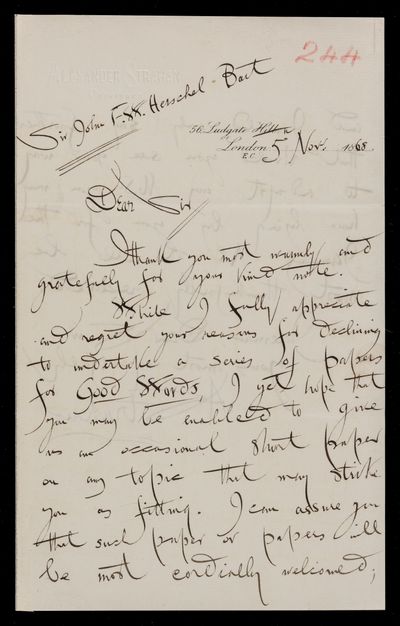 244
ALEXANDER STRAHAN
Sir John F. W. Herschel - Bart
56, Ludgate Hill
London 5 Nov. 1868
E.C.
Dear Sir
Thank you most warmly and
gratefully for your kind note.
While I fully appreciate
and regret your reasons for declining
to undertake a series of papers
for Good Words, I yet hope that
you may be enabled to give
us an occasional short paper
on any topic that may strike
you as fitting. I can assure you
that such paper or papers will
be most cordially welcomed;